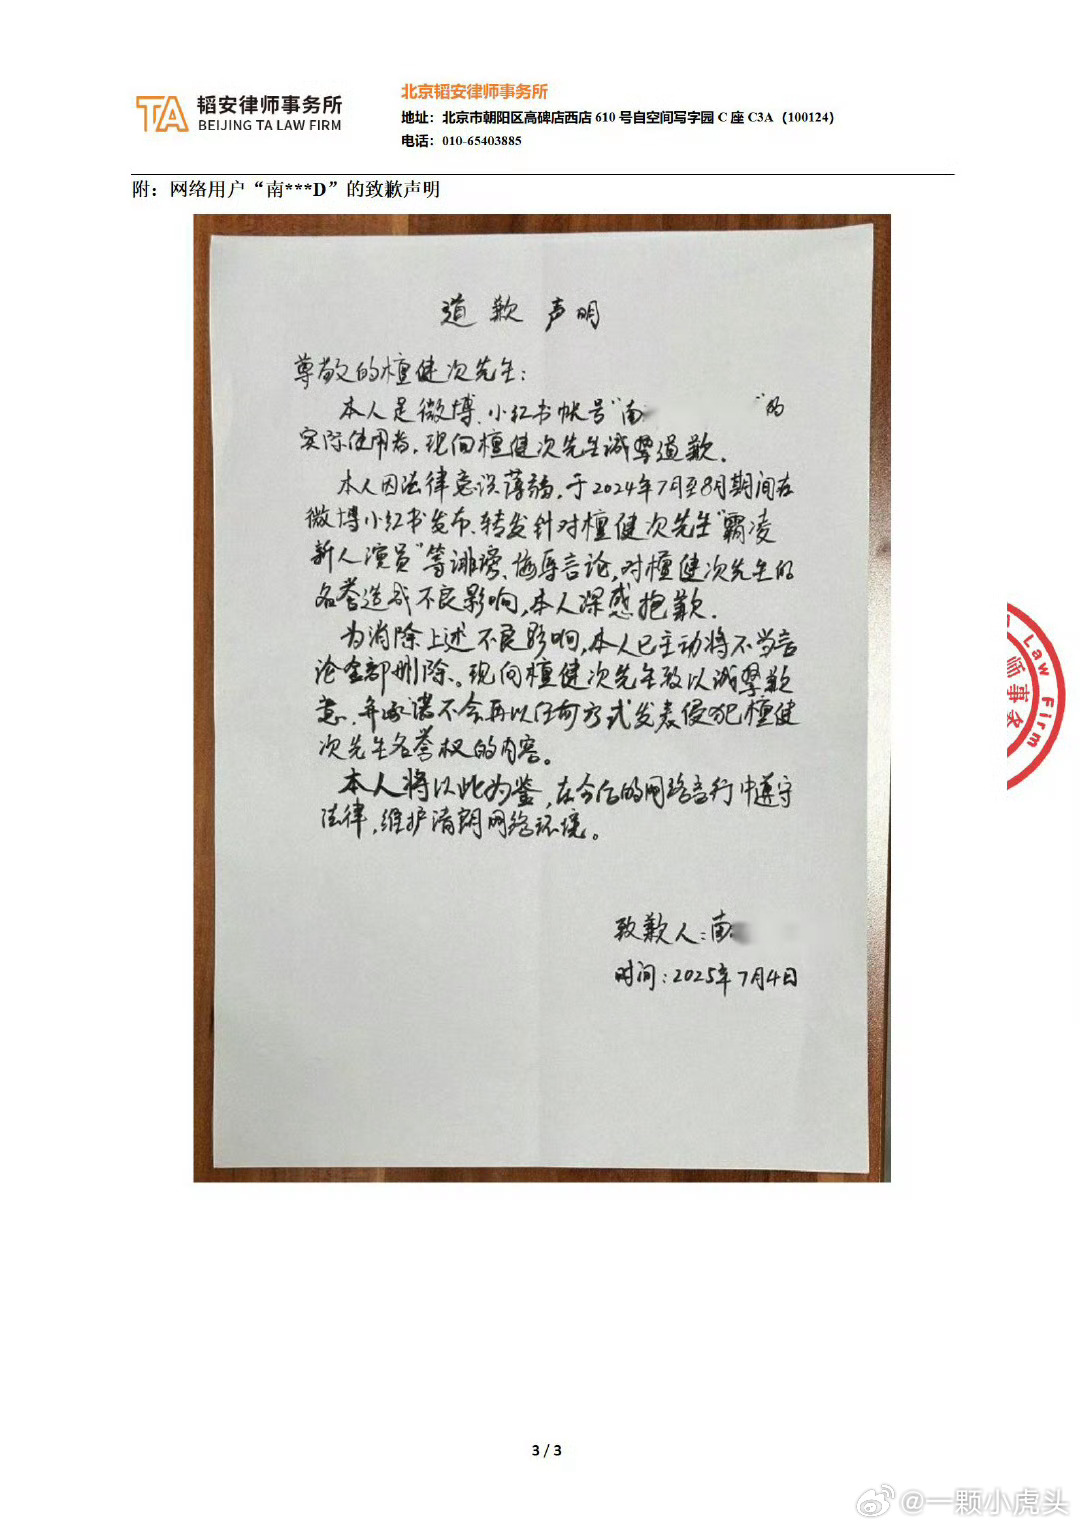 TA 韬安律师事务所
BEIJING TA LAW FIRM
北京韬安律师事务所
地址：北京市朝阳区高碑店西店 610 号自空间写字园 C 座 C3A（100124）
电话：010-65403885
附：网络用户“南***D”的致歉声明
道歉声明
尊敬的檀健次先生：
本人是微博、小红书帐号“南 ”的
实际使用者，现向檀健次先生诚挚道歉.
本人因法律意识薄弱，于2024年7月至8月期间在
微博小红书发布、转发针对檀健次先生“霸凌
新人演员”等诽谤、侮辱言论，对檀健次先生的
名誉造成不良影响，本人深感抱歉.
为消除上述不良影响，本人已主动将不当言
论全部删除。现向檀健次先生致以诚挚歉
意，并承诺不会再以任何方式发表侵犯檀健
次先生名誉权的内容。
本人将以此为鉴，在今后的网络言行中遵守
法律，维护清朗网络环境。
致歉人：南
时间：2025年7月4日
Law Firm
师事务
3 / 3
@一颗小虎头